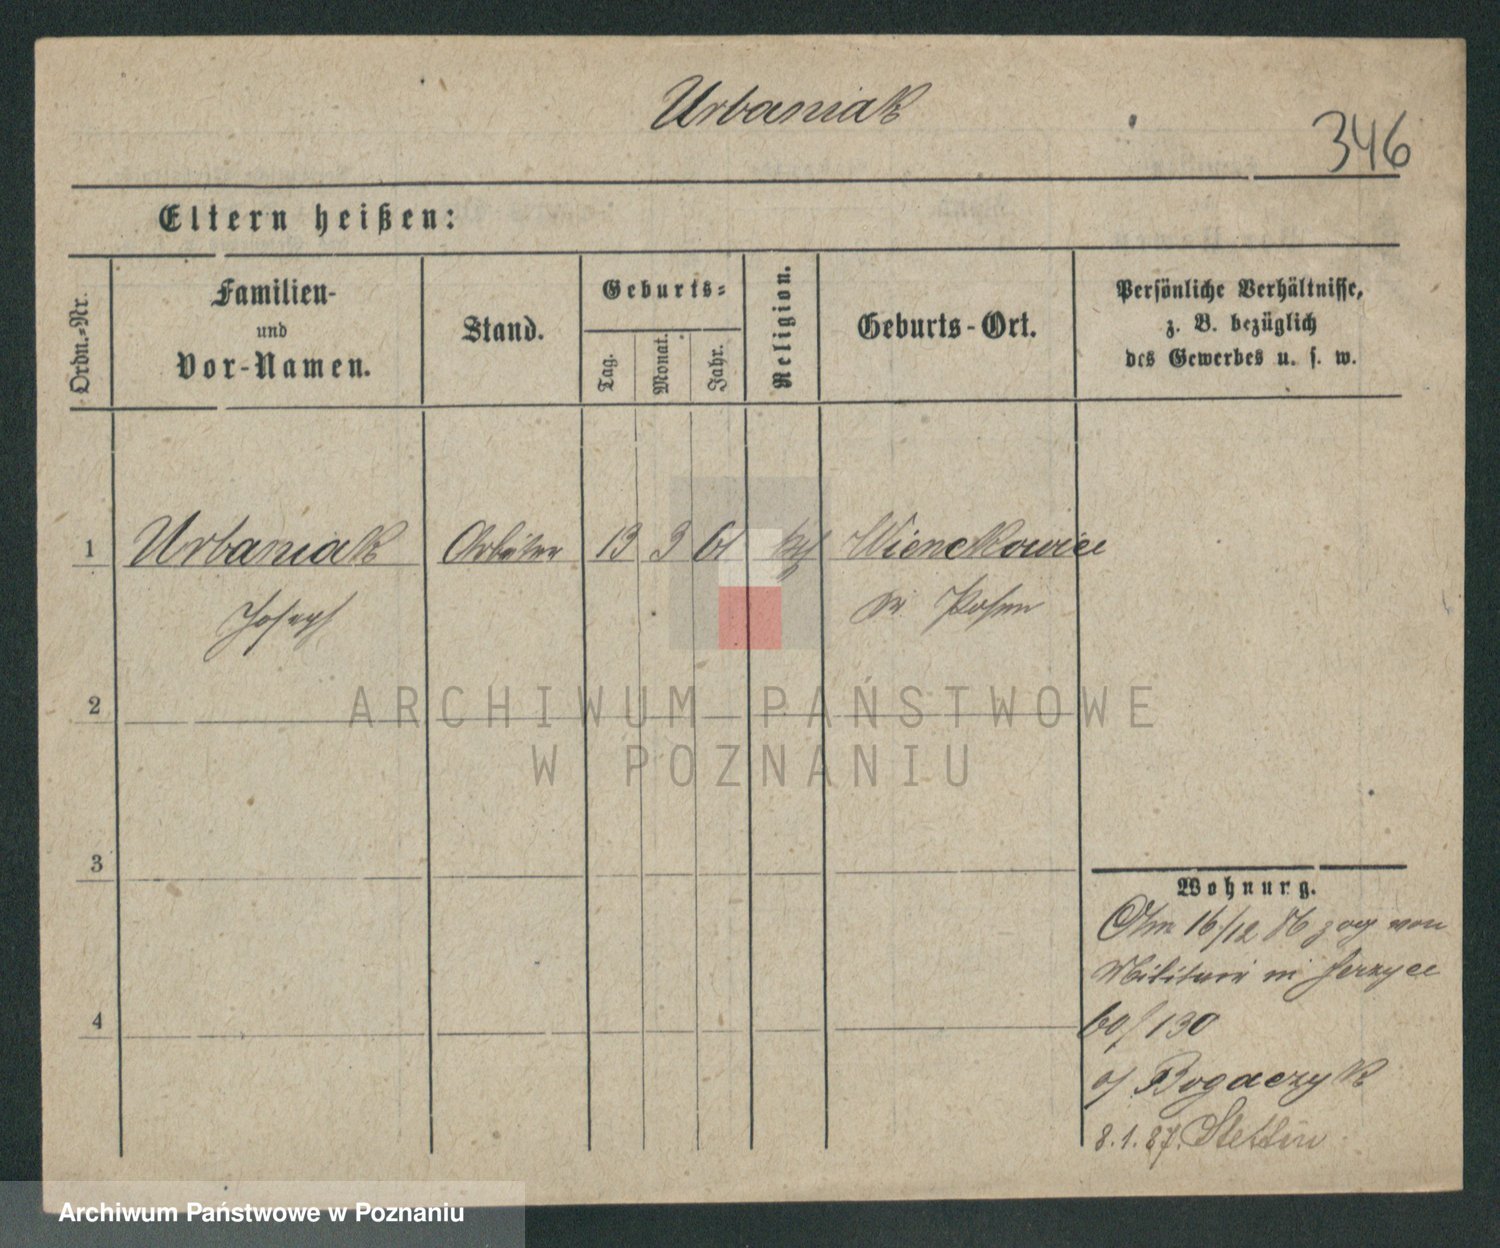 Urbaniak
346
Eltern heißen:
Ordn.-Nr.
Familien-
und
Vor-Namen.
Stand.
Geburts-
Tag.
Monat.
Jahr.
Religion.
Geburts-Ort.
Persönliche Verhältnisse,
z. B. bezüglich
des Gewerbes u. s. w.
1 Urbaniak Arbeiter 13 3 61 kth Wienckowice
Joseph Kr. Posen
2
ARCHIWUM PAŃSTWOWE
W POZNANIU
3
4
Wohnung.
Am 16/12 86 zog von
Militair in Jerzyce
60/130
b/ Bogaczyk
8.1.87. Stettin
Archiwum Państwowe w Poznaniu